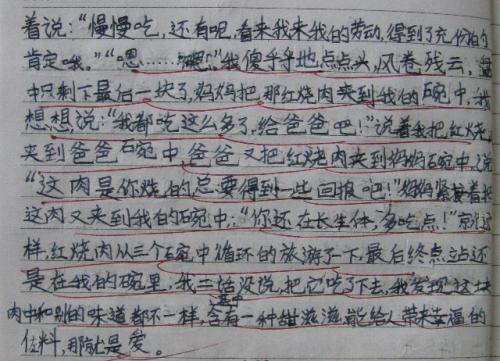 着说：“慢慢吃，还有呢，看来我来我的劳动，得到了充份的
肯定哦。”“嗯……嗯！”我傻乎乎地点点头，风卷残云，盘
中只剩下最后一块了，妈妈把那红烧肉夹到我的碗中，我
想想，说：“我都吃这么多了，给爸爸吧！”说着我把红烧
夹到爸爸碗中，爸爸又把红烧肉夹到妈妈碗中，说
“这肉是你烧的总要得到一些回报吧！”妈妈紧接着把
这肉又夹到我的碗中：“你还在长生体，多吃点！”就这
样，红烧肉从三个碗中循环的旅游了一下，最后终点站还
是在我的碗里，我二话没说，把它吃了下去，我发现这块
肉中和别的味道都不一样，含有一种甜滋滋，能给人带来幸福的
佐料，那就是爱。